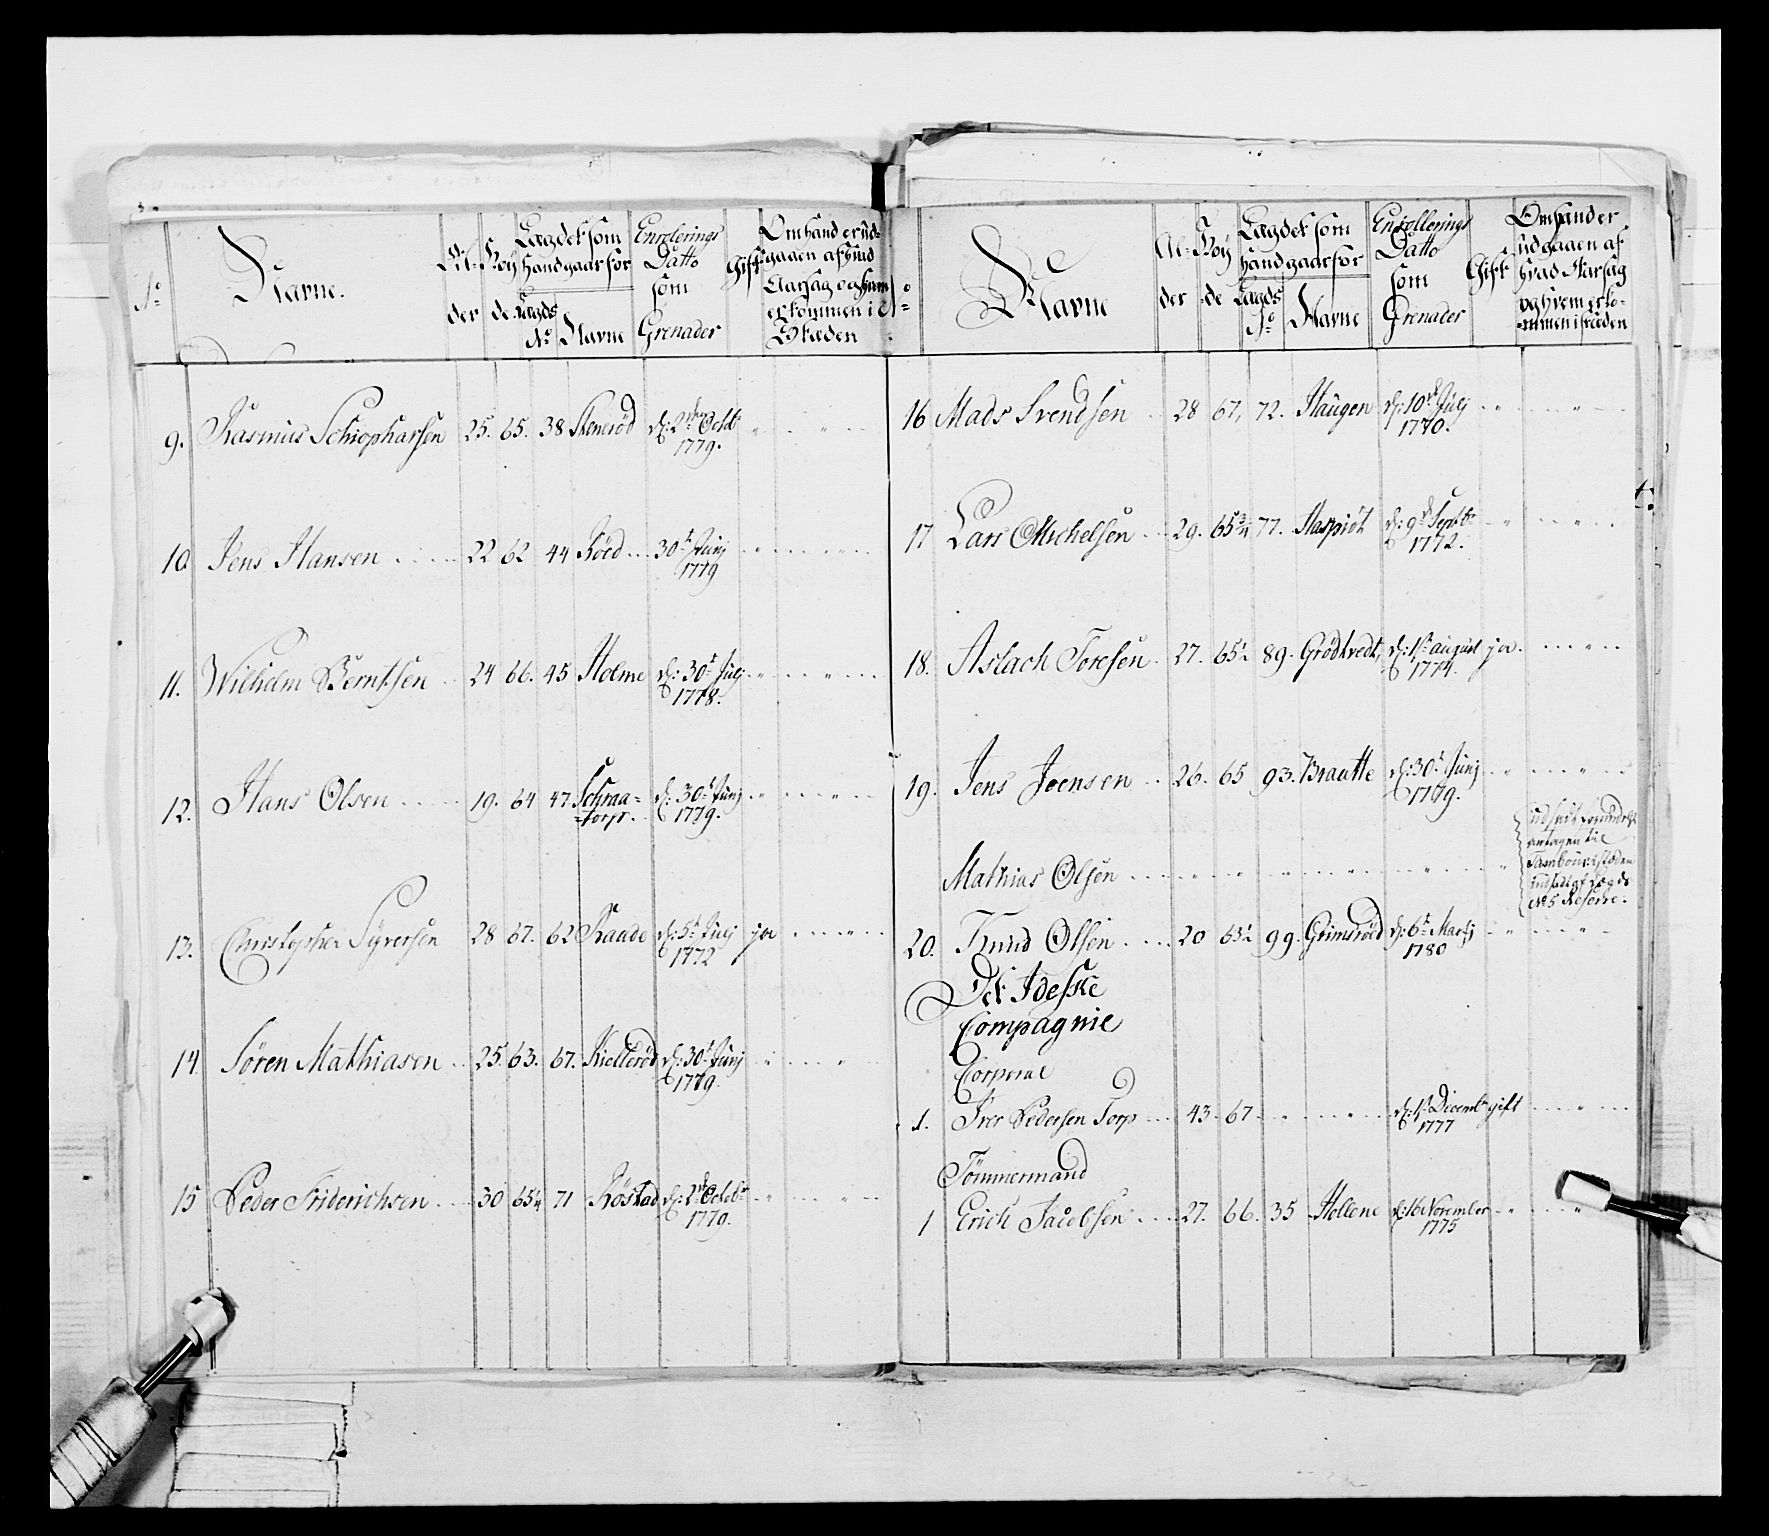 No Navne. Al- der Höy de Lægdet som hand gaar for Lægds No Navne Enrolerings Datto som Grenader Gift Om hand er ud- gaaen af hvad Aarsag og hvem er kommen i Stæden
9. Rasmus 25. 65. 38 d: 2den Octbr 1779.
10 Jens Hansen 22 62 44 Röed 30t Junj 1779
11. Wilhelm Berntsen 24 66. 45 Holme d: 30t Julj 1778.
12. Hans Olsen 19. 64 47. Schraa= =torp. d: 30t Junj 1779.
13. Christopher Syversen 28 67. 62 Raade d: 5t Julj 1772 ja
14. Sören Mathiasen 25. 63. 67. Kielleröd d: 30t Junj 1779.
15 Peder Friderichsen 30 65¼ 71 Röstad d: 2den Octobr 1779.
No Navne Al- der Höy de Lægdet som hand gaar for Lægds No Navne Enrollerings Datto som Grenader Gift Om hand er udgaaen af hvad Aarsag og hvem er ko- =mmen i stæden
16 Mads Svendsen 28 67, 72. Haugen d: 10de Julj 1770.
17 Lars Michelsen 29. 65¾ 77. d: 9de Septbr 1772.
18. Aslach Toresen 27. 65½ 89. Grödtvedt, d: 1te august 1774. ja.
19. Jens Joensen 26. 65 93. Braatte d: 30t Junj 1779.
Mathias Olsen antagen til Tambour i stæden af Lægds No 5 Reserve.
20. Knud Olsen 20 63½ 99. Grimsröed d: 6t Martj 1780
Det Ideske
Compagnie
Corporal
1. Iver Pedersen Torp 43. 67 d: 1te Decembr 1777 gift
Tömmermand
1 Erich Jacobsen 27. 66. 35 Hellene d: 16 November 1775